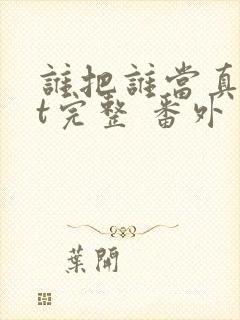 誰把誰當真
t完整 番外
葉開